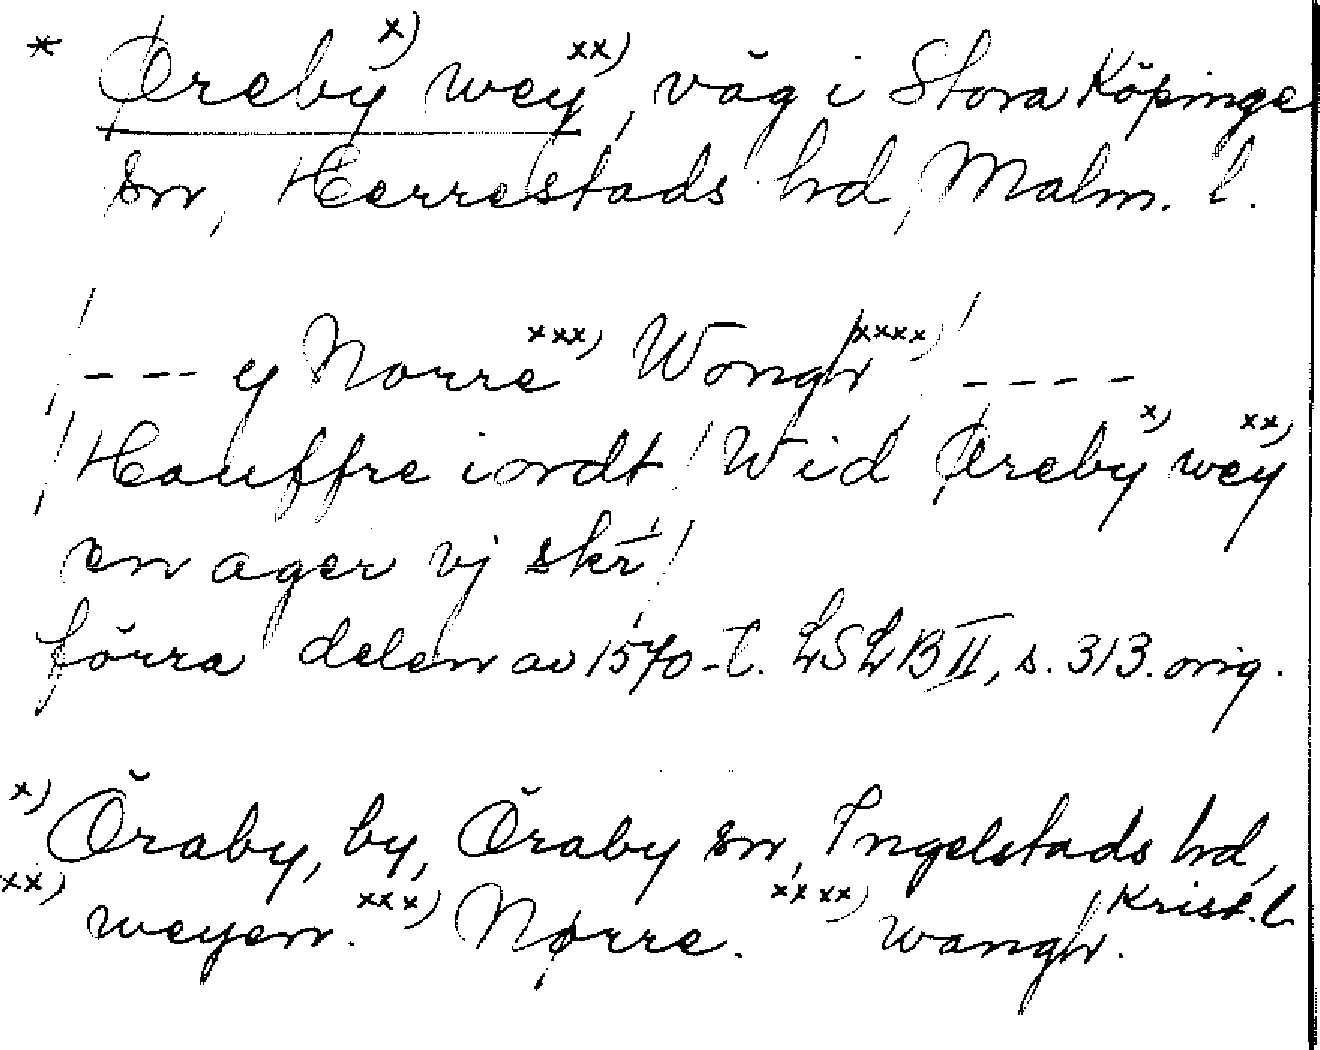 * Øreby x) wey xx), väg i Stora Köpinge
sn, Herrestads hd, Malm. l.
/--- y Norre xxx) Wongh xxxx) / ----
/Houffre iordt/ Wid Øreby x) wey xx)
en ager vj skr/
förra delen av 1570-t. LSLB II, s. 313. orig.
x) Öraby, by, Öraby sn, Ingelstads hd,
Krist. l.
xx) weyen. xxx) Nørre. xxxx) wangh.